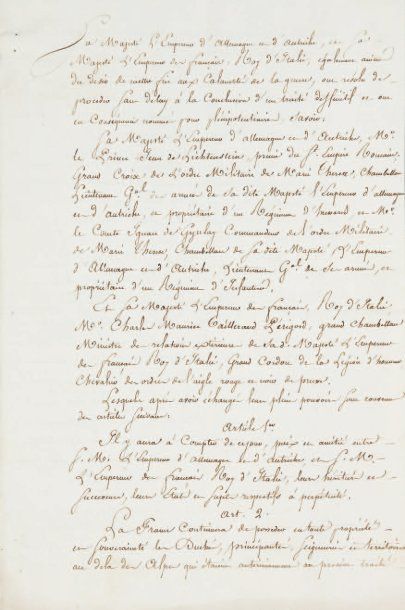 Sa Majesté L'Empereur d'Allemagne et d'Autriche, et Sa
Majesté L'Empereur des français, Roy d'Italie, également animés
du désir de mettre fin aux Calamités de la guerre, ont résolu de
procéder sans délay à la Conclusion d'un traité déffinitif et ont
en Conséquence nommé pour plénipotentiaires, Savoir:
Sa Majesté L'Empereur d'allemagne et d'Autriche, Mr.
le Prince Jean de Lichtenstein, prince du St. Empire Romain,
Grand Croix de L'ordre Militaire de Marie Therese, Chambellan
Lieutenant Gal. des armées de Sa dite Majesté l'Empereur d'allemagne
et d'autriche, et propriétaire d'un Régiment d'hussard et Mr.
le Comte Ignace de Gyulay Commandeur de l'ordre Militaire
de Marie Therese, Chambellan de Sa dite Majesté L'Empereur
d'Allemagne et d'Autriche, Lieutenant Gal. de Ses armées, et
propriétaire d'un Régiment d'Infanterie;
Et Sa Majesté L'Empereur des français, Roy d'Italie
Mr. Charles Maurice Tailleraud Perigord, grand Chambellan
Ministre des relations extérieures de Sa de Majesté L'Empereur
des français Roy d'Italie, Grand Cordon de la Légion d'honneur
Chevalier des ordres de l'aigle rouge et noir de prusse.
Lesquels après avoir échangé leurs pleins pouvoirs sont convenus
des articles Suivans:
Article 1er
Il y aura à Compter de ce jour, paix et amitié entre
S. M. L'Empereur d'allemagne et d'autriche et S. M.
L'Empereur des français Roy d'Italie, leurs héritiers et
Successeurs, leurs Etats et Sujets respectifs à perpétuité.
Art. 2.
La France Continuera de posséder en toute propriété
et Souveraineté les Duchés, principautés, Seigneuries et territoires
au delà des Alpes qui étaient antérieurement au présent traité